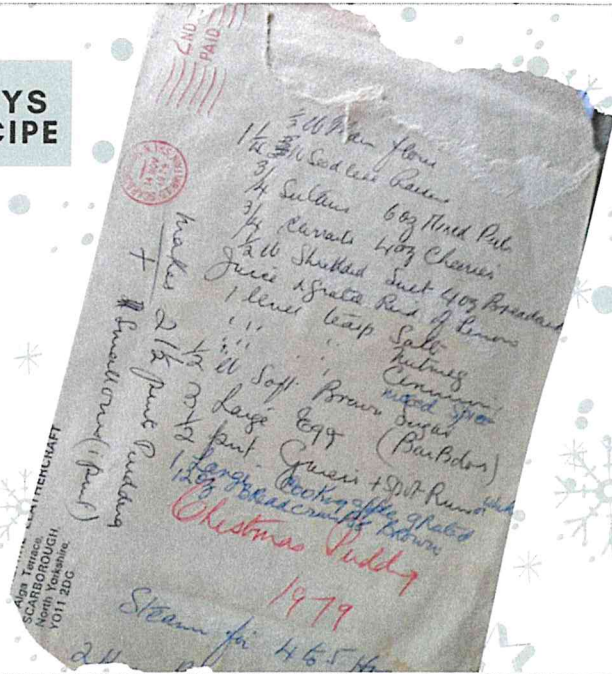 YS
CIPE
2ND
PAID
½ lb Plain flour
1½ lb Seedless Raisins
¾ Sultans 6oz Mixed Peel
¾ Currants 4oz Cherries
½ lb Shredded Suet 4oz Breadcrumbs
Juice & Grated Rind of Lemon
1 level teasp Salt
" " Nutmeg
" " Cinnamon
mixed spice
½ lb Soft Brown Sugar
(Barbdos)
Large Egg
½ pint Guiness + Spot Rum
1 Large Cooking apple grated
12oz Breadcrumbs Brown
Christmas Pudding
1979
Steam for 4 to 5 H
2 H
Makes 2 1½ pint Pudding
+
Small one (1 pint)
LEATHERCRAFT
Alga Terrace,
SCARBOROUGH,
North Yorkshire,
YO11 2DG